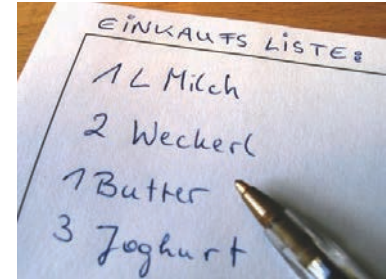 EiNKAUFS LiSTE:
1 L Milch
2 Weckerl
1 Butter
3 Joghurt